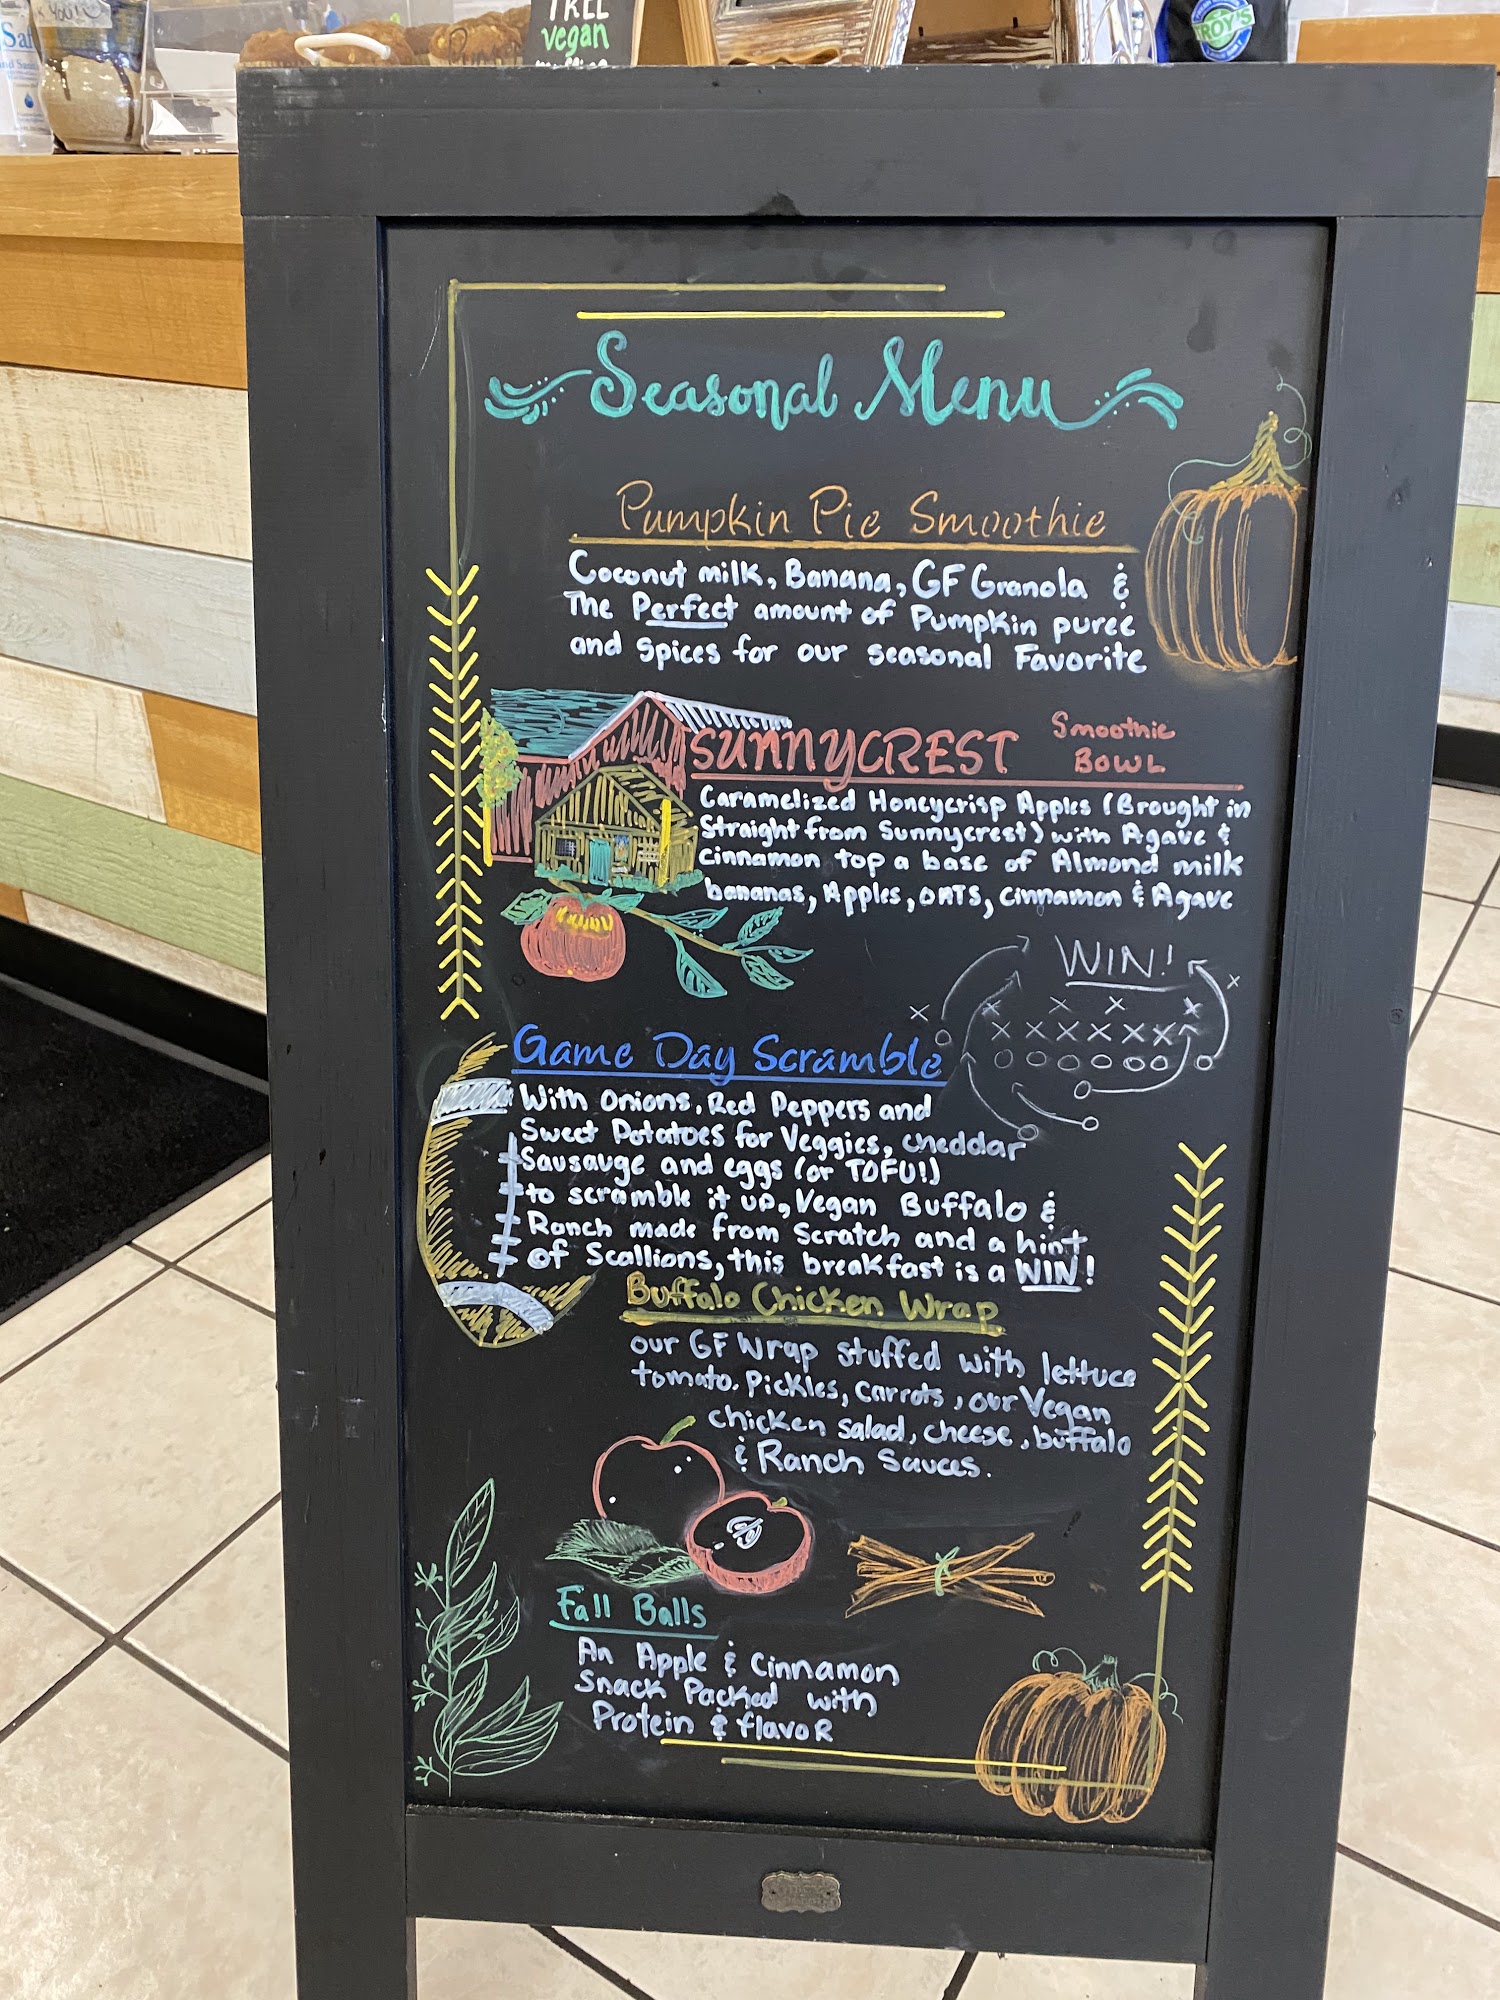 YOU
Saf
FREE
vegan
TROY'S
Seasonal Menu
Pumpkin Pie Smoothie
Coconut milk, Banana, GF Granola &
The Perfect amount of Pumpkin puree
and spices for our seasonal Favorite
SUNNYCREST Smoothie
BOWL
Caramelized Honeycrisp Apples (Brought in
Straight from Sunnycrest) with Agave &
cinnamon top a base of Almond milk
bananas, Apples, OATS, cinnamon & Agave
WIN!
Game Day Scramble
With Onions, Red Peppers and
Sweet Potatoes for Veggies, cheddar
Sausauge and eggs (or TOFU!)
to scramble it up, Vegan Buffalo &
Ranch made from Scratch and a hint
of Scallions, this breakfast is a WIN!
Buffalo Chicken Wrap
our GF Wrap stuffed with lettuce
tomato. Pickles, carrots, our Vegan
chicken salad, cheese, buffalo
& Ranch Sauces.
Fall Balls
An Apple & Cinnamon
Snack Packed with
Protein & flavoR